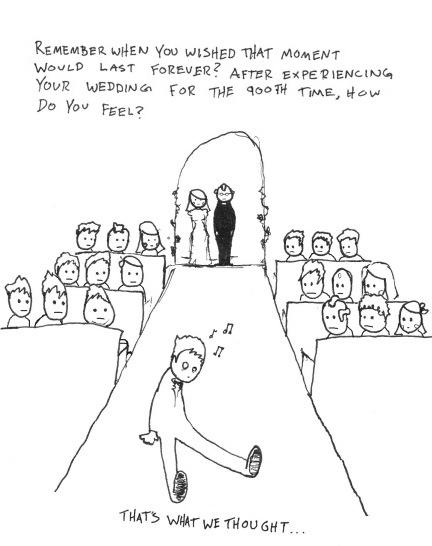 REMEMBER WHEN YOU WISHED THAT MOMENT
WOULD LAST FOREVER? AFTER EXPERIENCING
YOUR WEDDING FOR THE 900TH TIME, HOW
DO YOU FEEL?
THAT'S WHAT WE THOUGHT...